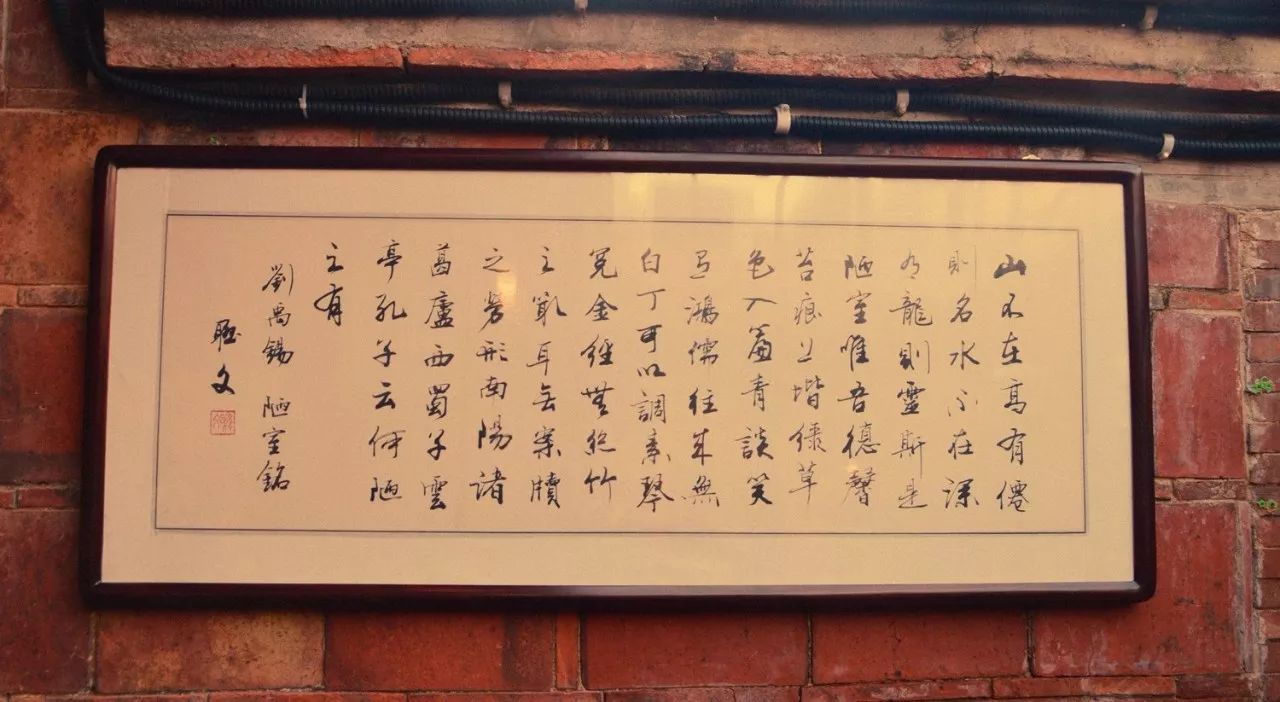 山不在高有僊
則名水不在深
有龍則靈斯是
陋室唯吾德馨
苔痕上堦綠草
色入簾青談笑
有鴻儒往來無
白丁可以調素琴
閱金經無絲竹
之亂耳无案牘
之勞形南陽諸
葛廬西蜀子雲
亭孔子云何陋
之有
劉禹錫 陋室銘
文